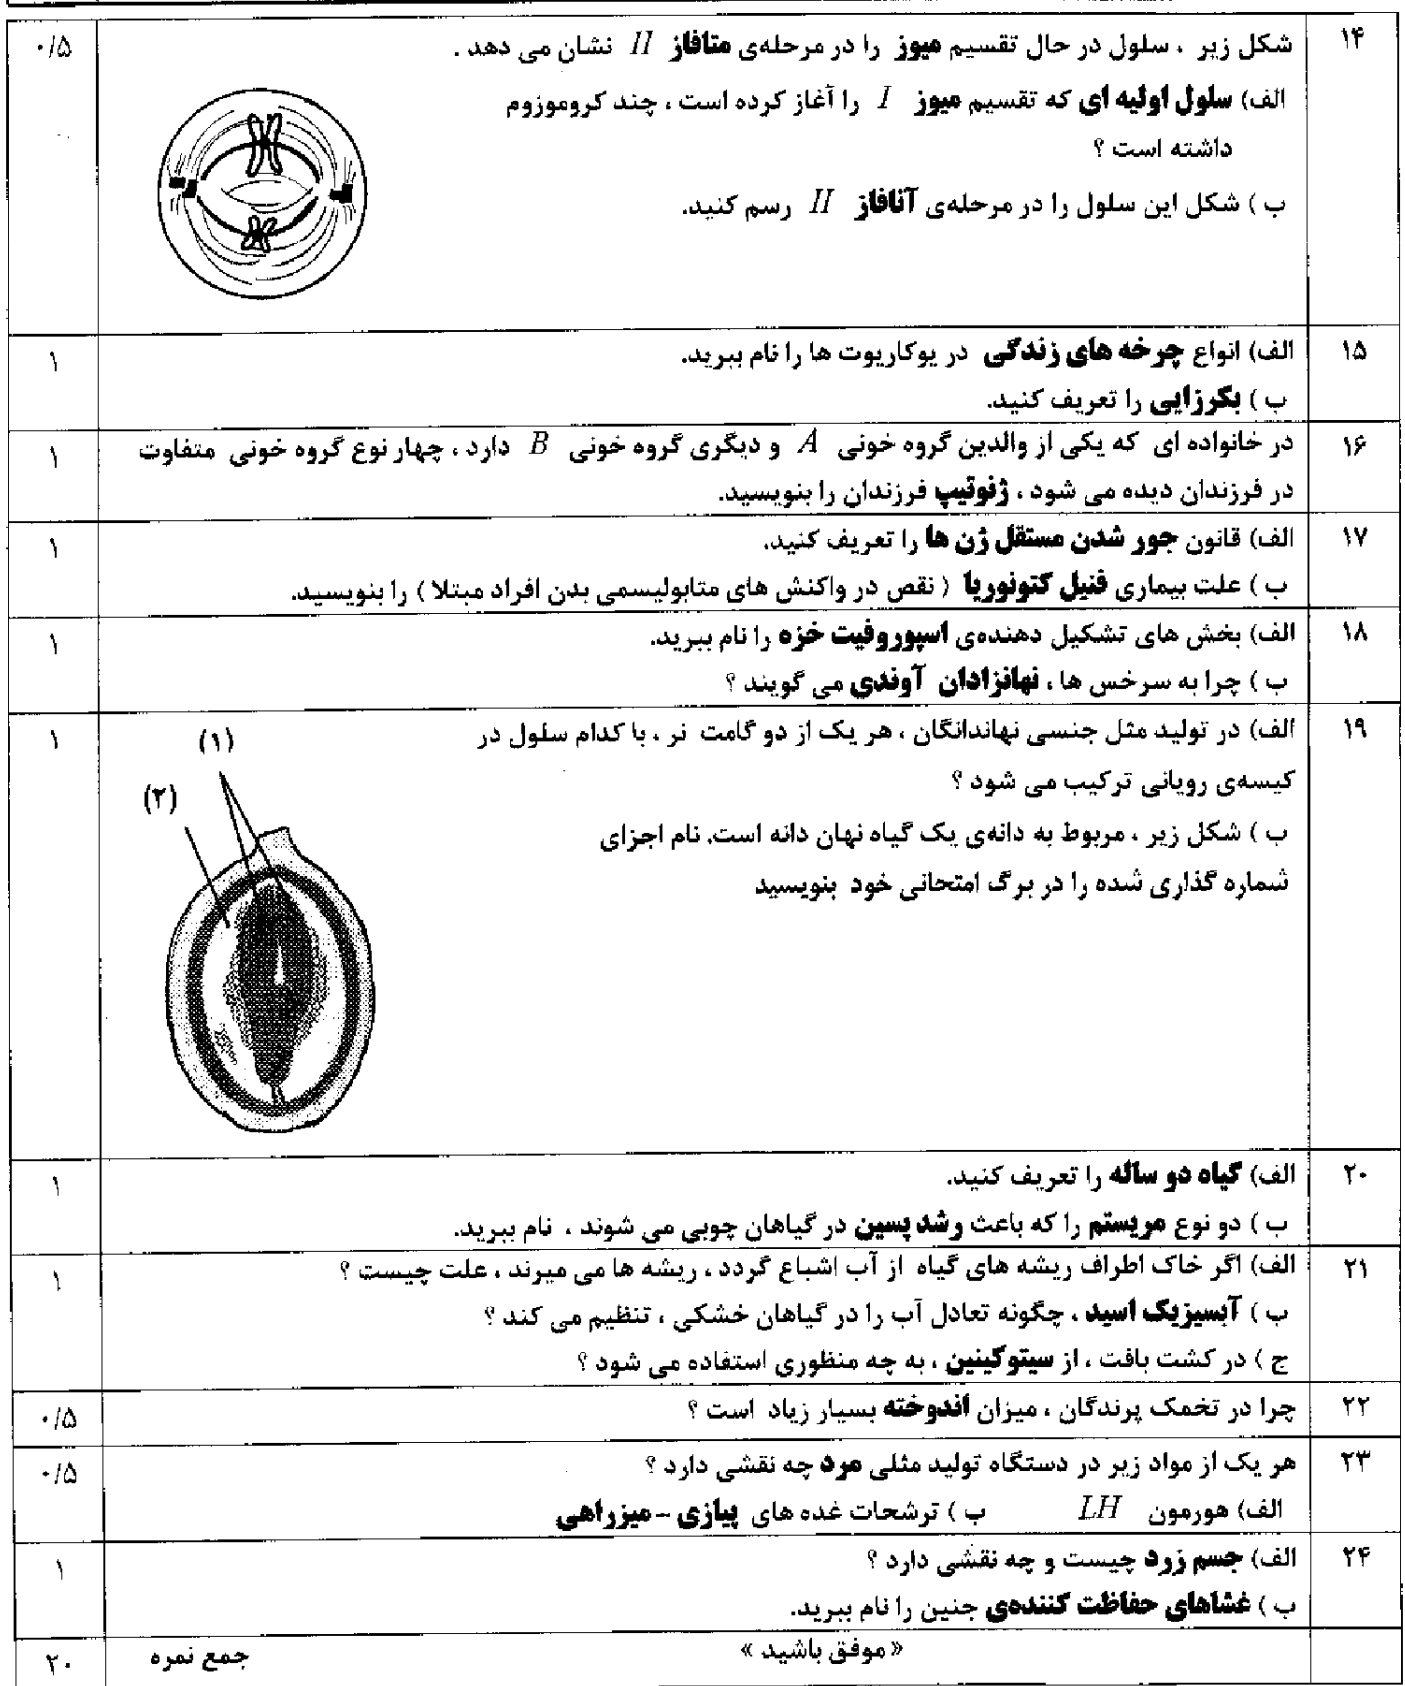 ۱۴ شکل زیر ، سلول در حال تقسیم میوز را در مرحله‌ی متافاز II نشان می دهد . ۰/۵
الف) سلول اولیه ای که تقسیم میوز I را آغاز کرده است ، چند کروموزوم
داشته است ؟
ب ) شکل این سلول را در مرحله‌ی آنافاز II رسم کنید.
۱۵ الف) انواع چرخه های زندگی در یوکاریوت ها را نام ببرید. ۱
ب ) بکرزایی را تعریف کنید.
۱۶ در خانواده ای که یکی از والدین گروه خونی A و دیگری گروه خونی B دارد ، چهار نوع گروه خونی متفاوت ۱
در فرزندان دیده می شود ، ژنوتیپ فرزندان را بنویسید.
۱۷ الف) قانون جور شدن مستقل ژن ها را تعریف کنید. ۱
ب ) علت بیماری فنیل کتونوریا ( نقص در واکنش های متابولیسمی بدن افراد مبتلا ) را بنویسید.
۱۸ الف) بخش های تشکیل دهنده‌ی اسپوروفیت خزه را نام ببرید. ۱
ب ) چرا به سرخس ها ، نهانزادان آوندی می گویند ؟
۱۹ الف) در تولید مثل جنسی نهاندانگان ، هر یک از دو گامت نر ، با کدام سلول در ۱
(۱)
کیسه‌ی رویانی ترکیب می شود ؟
(۲)
ب ) شکل زیر ، مربوط به دانه‌ی یک گیاه نهان دانه است. نام اجزای
شماره گذاری شده را در برگ امتحانی خود بنویسید
۲۰ الف) گیاه دو ساله را تعریف کنید. ۱
ب ) دو نوع مریستم را که باعث رشد پسین در گیاهان چوبی می شوند ، نام ببرید.
۲۱ الف) اگر خاک اطراف ریشه های گیاه از آب اشباع گردد ، ریشه ها می میرند ، علت چیست ؟ ۱
ب ) آبسیزیک اسید ، چگونه تعادل آب را در گیاهان خشکی ، تنظیم می کند ؟
ج ) در کشت بافت ، از سیتوکینین ، به چه منظوری استفاده می شود ؟
۲۲ چرا در تخمک پرندگان ، میزان اندوخته بسیار زیاد است ؟ ۰/۵
۲۳ هر یک از مواد زیر در دستگاه تولید مثلی مرد چه نقشی دارد ؟ ۰/۵
الف) هورمون LH ب ) ترشحات غده های پیازی - میزراهی
۲۴ الف) جسم زرد چیست و چه نقشی دارد ؟ ۱
ب ) غشاهای حفاظت کننده‌ی جنین را نام ببرید.
« موفق باشید » جمع نمره ۲۰